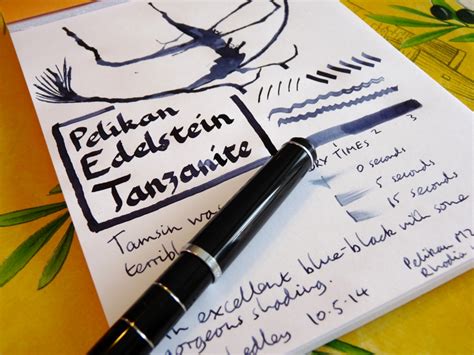 Pelikan
Edelstein
Tanzanite
2 3
RY TIMES
0 seconds
5 seconds
15 seconds
Tamsin was
terribl
excellent blue-black with some
gorgeous shading.
edley 10.5.14
Pelikan M2
Rhodia